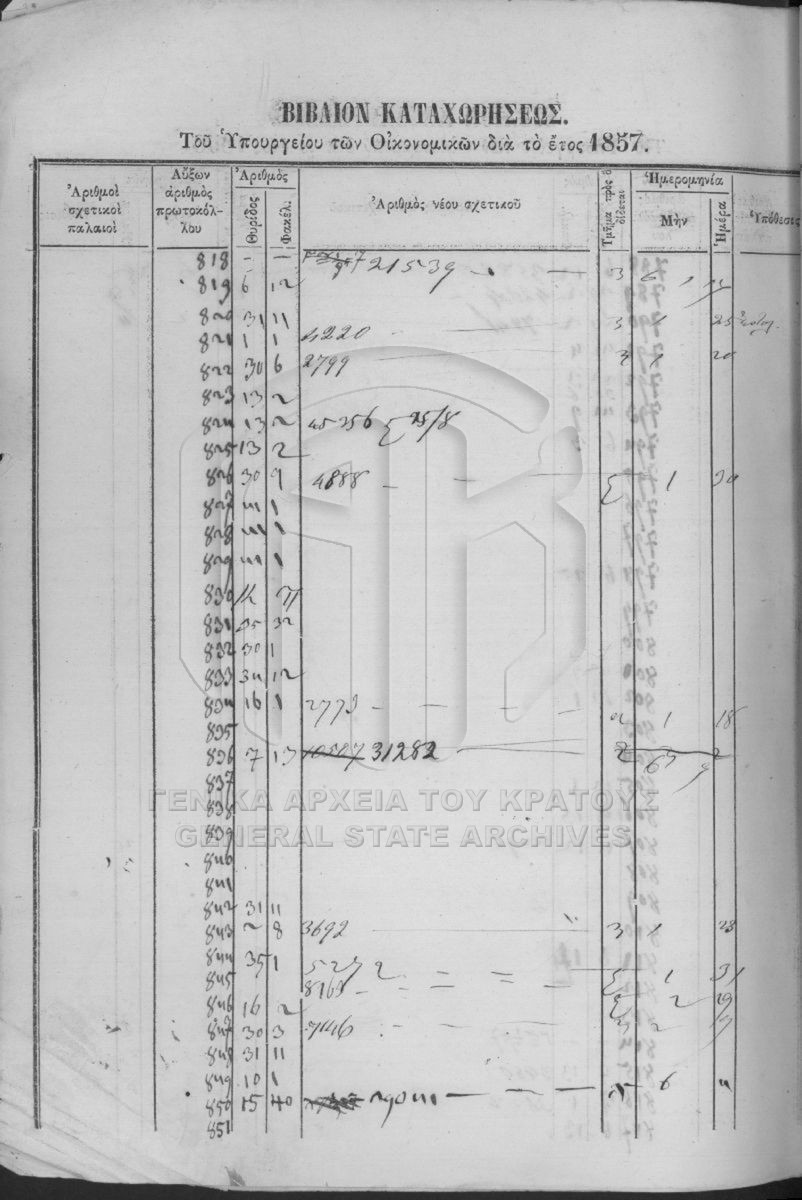 ΒΙΒΛΙΟΝ ΚΑΤΑΧΩΡΗΣΕΩΣ.
Τοῦ Ὑπουργείου τῶν Οἰκονομικῶν διὰ τὸ ἔτος 1857.
Ἀριθμοὶ σχετικοὶ παλαιοὶ
Αὔξων ἀριθμὸς πρωτοκόλ-λου
Ἀριθμὸς
Θυρίδος
Φακέλ.
Ἀριθμὸς νέου σχετικοῦ
Τμῆμα πρὸς ὃ δίδεται
Ἡμερομηνία
Μὴν
Ἡμέρα
Ὑπόθεσις
818 - -
819 6 12 21539 3 6
820 31 11 3 1 25
821 1 1 4220
822 30 6 2799 3 1 20
823 13 2
824 13 2 45256 25/8
825 13 2
826 30 9 4888 1 30
827 1
828 1
829 1
830
831 35 32
832 30 1
833 34 12
834 16 1 2773 1 18
835
836 7 13 31282
837
838
839
840
841
842 31 11
843 2 8 3692 3 1 28
844 35 1 5272 1 31
845 8163 2 29
846 16 2
847 30 3 7446 2
848 31 11
849 10 1
850 15 40 6 4
851
ΓΕΝΙΚΑ ΑΡΧΕΙΑ ΤΟΥ ΚΡΑΤΟΥΣ
GENERAL STATE ARCHIVES